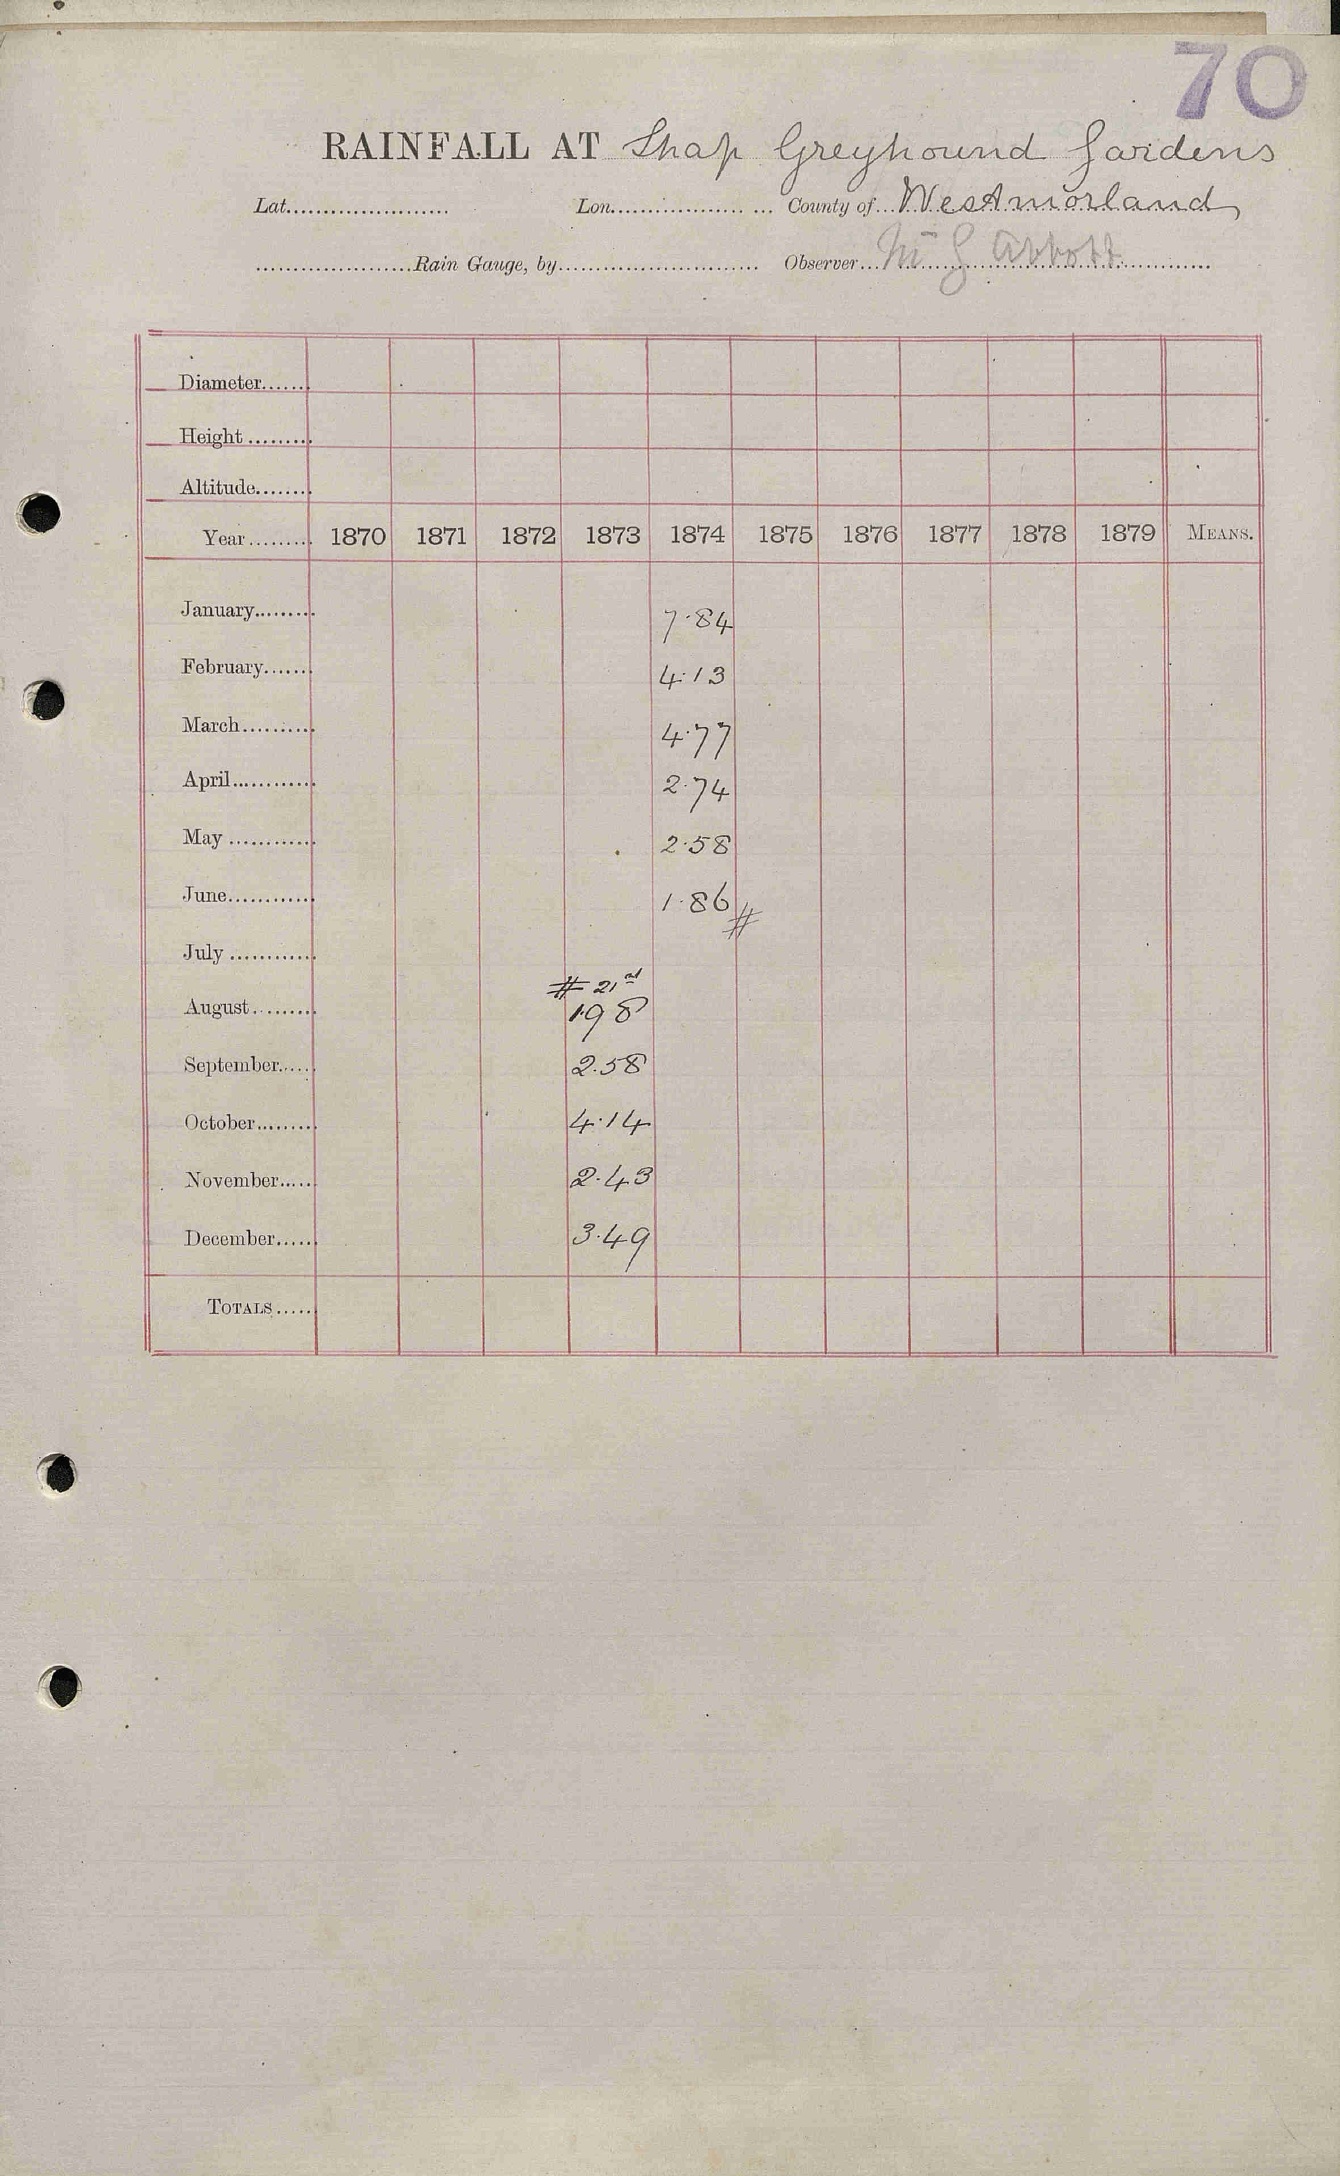 70
RAINFALL AT Shap Greyhound Gardens
Lat. Lon. County of Westmorland
Rain Gauge, by Observer Mr G Abbott
Diameter
Height
Altitude
Year 1870 1871 1872 1873 1874 1875 1876 1877 1878 1879 MEANS.
January 7.84
February 4.13
March 4.77
April 2.74
May 2.58
June 1.86 #
July
# 21st
August 1.98
September 2.58
October 4.14
November 2.43
December 3.49
TOTALS